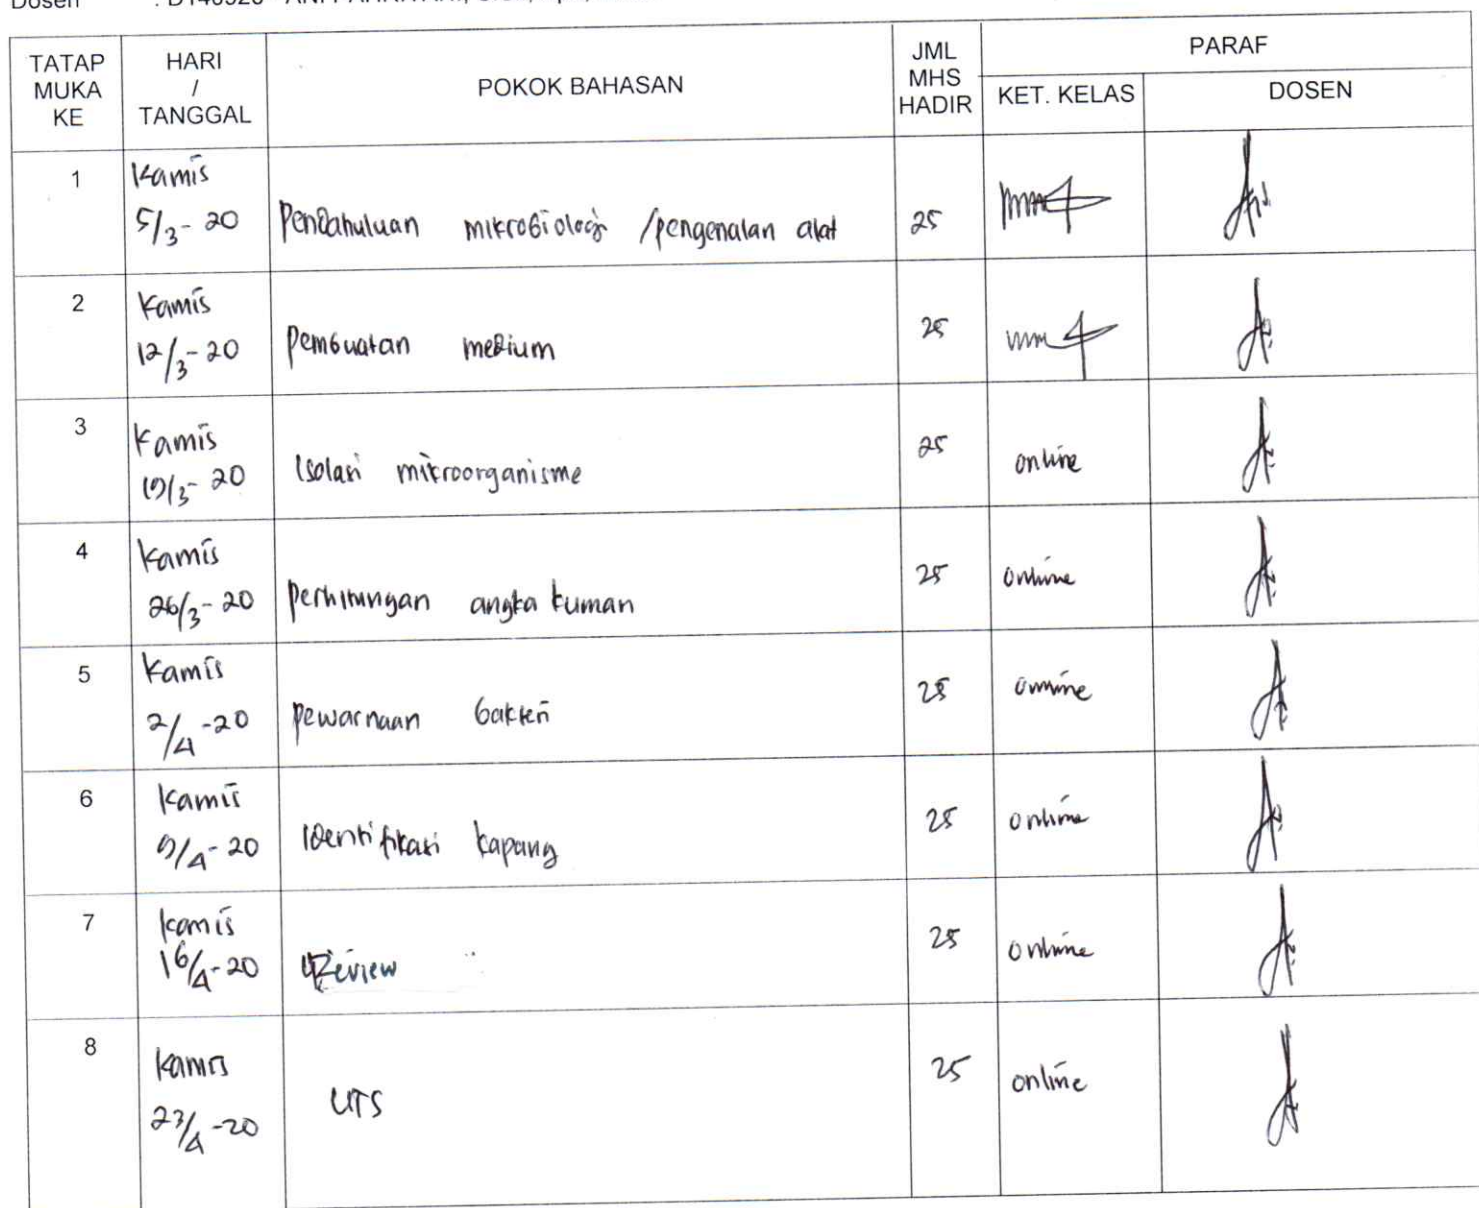 Dosen
TATAP MUKA KE HARI / TANGGAL POKOK BAHASAN JML MHS HADIR PARAF
KET. KELAS DOSEN
1 Kamis 5/3-20 Pendahuluan mikrobiologi /pengenalan alat 25
2 Kamis 12/3-20 Pembuatan medium 25
3 Kamis 19/3-20 Isolasi mikroorganisme 25 online
4 Kamis 26/3-20 perhitungan angka kuman 25 online
5 Kamis 2/4-20 pewarnaan bakteri 25 online
6 Kamis 9/4-20 identifikasi kapang 25 online
7 Kamis 16/4-20 Review 25 online
8 Kamis 23/4-20 UTS 25 online